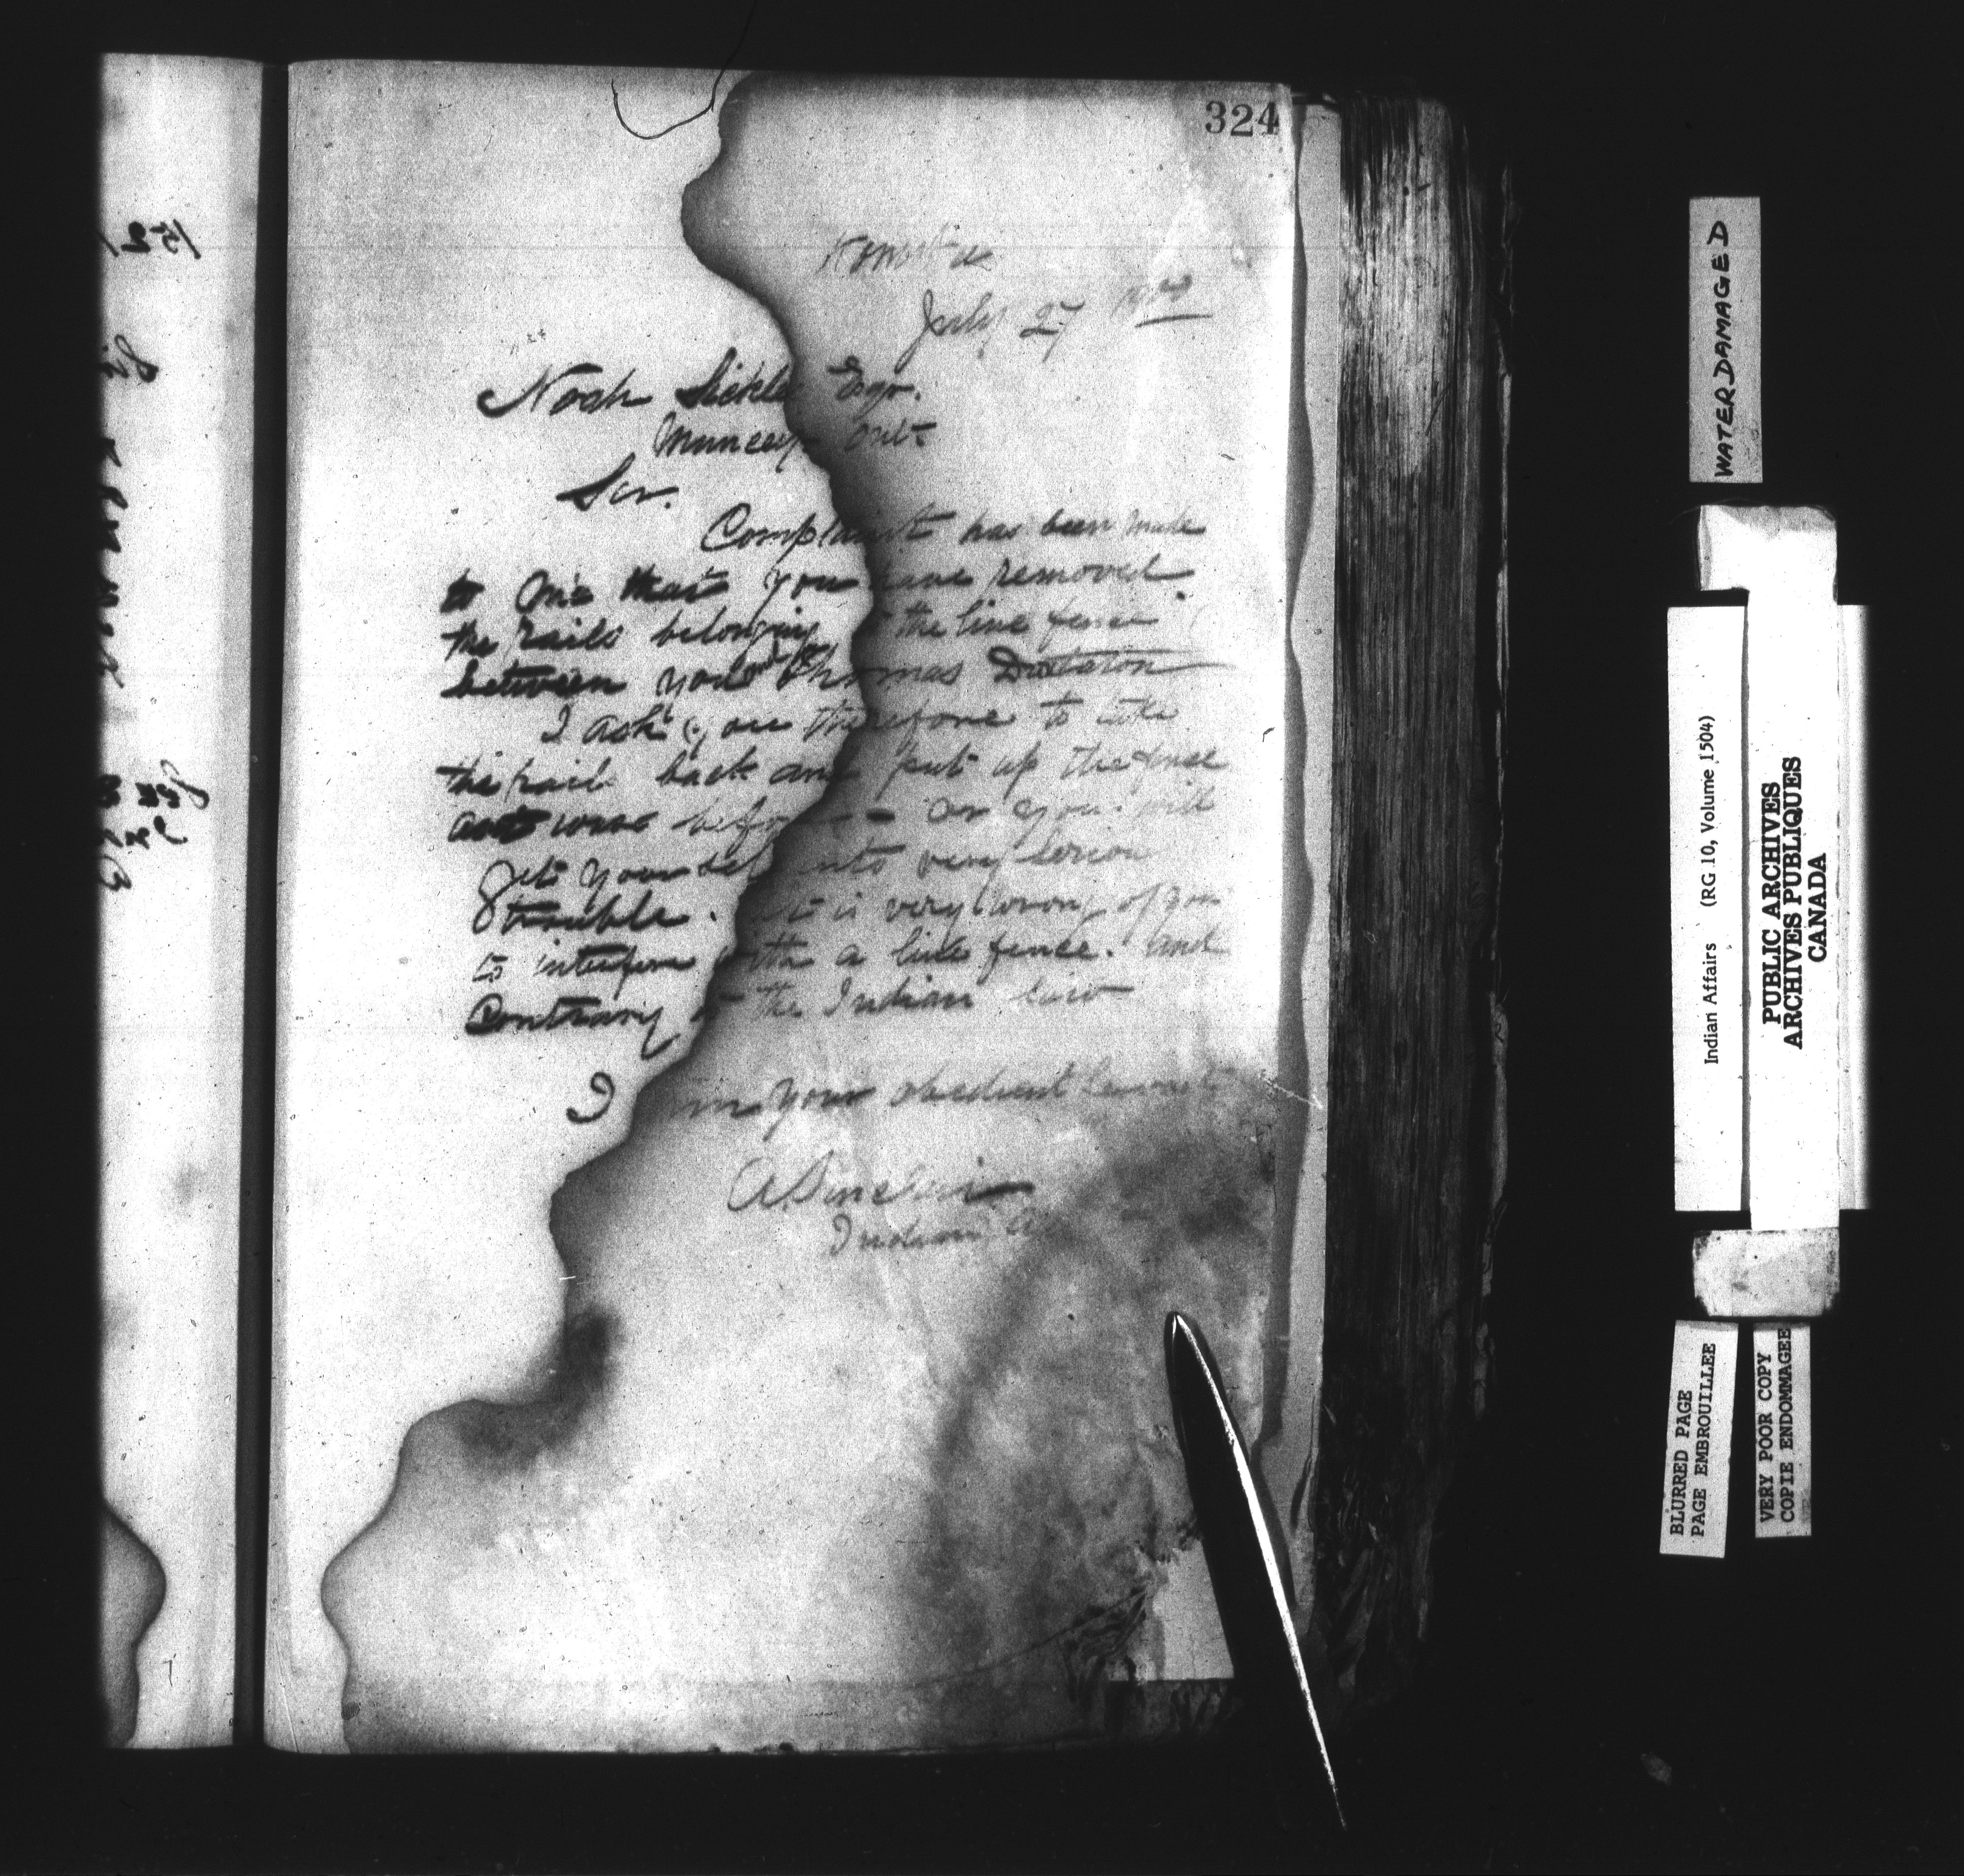 324
July 27 1900
Noah Sickle Esqr.
Muncey Ont
Sir.
Complaint has been made
to me that you have removed
the rails belonging the line fence
between you and Thomas
I ask you therefore to take
the rails back and put up the fence
as it was before - or you will
get yourself into very serious
trouble. It is very wrong of you
to interfere with a line fence. and
Contrary to the Indian Law
I am your obedient Servant
A Sinclair
Indian
WATER DAMAGED
Indian Affairs (RG 10, Volume 1504)
PUBLIC ARCHIVES
ARCHIVES PUBLIQUES
CANADA
BLURRED PAGE
PAGE EMBROUILLEE
VERY POOR COPY
COPIE ENDOMMAGEE